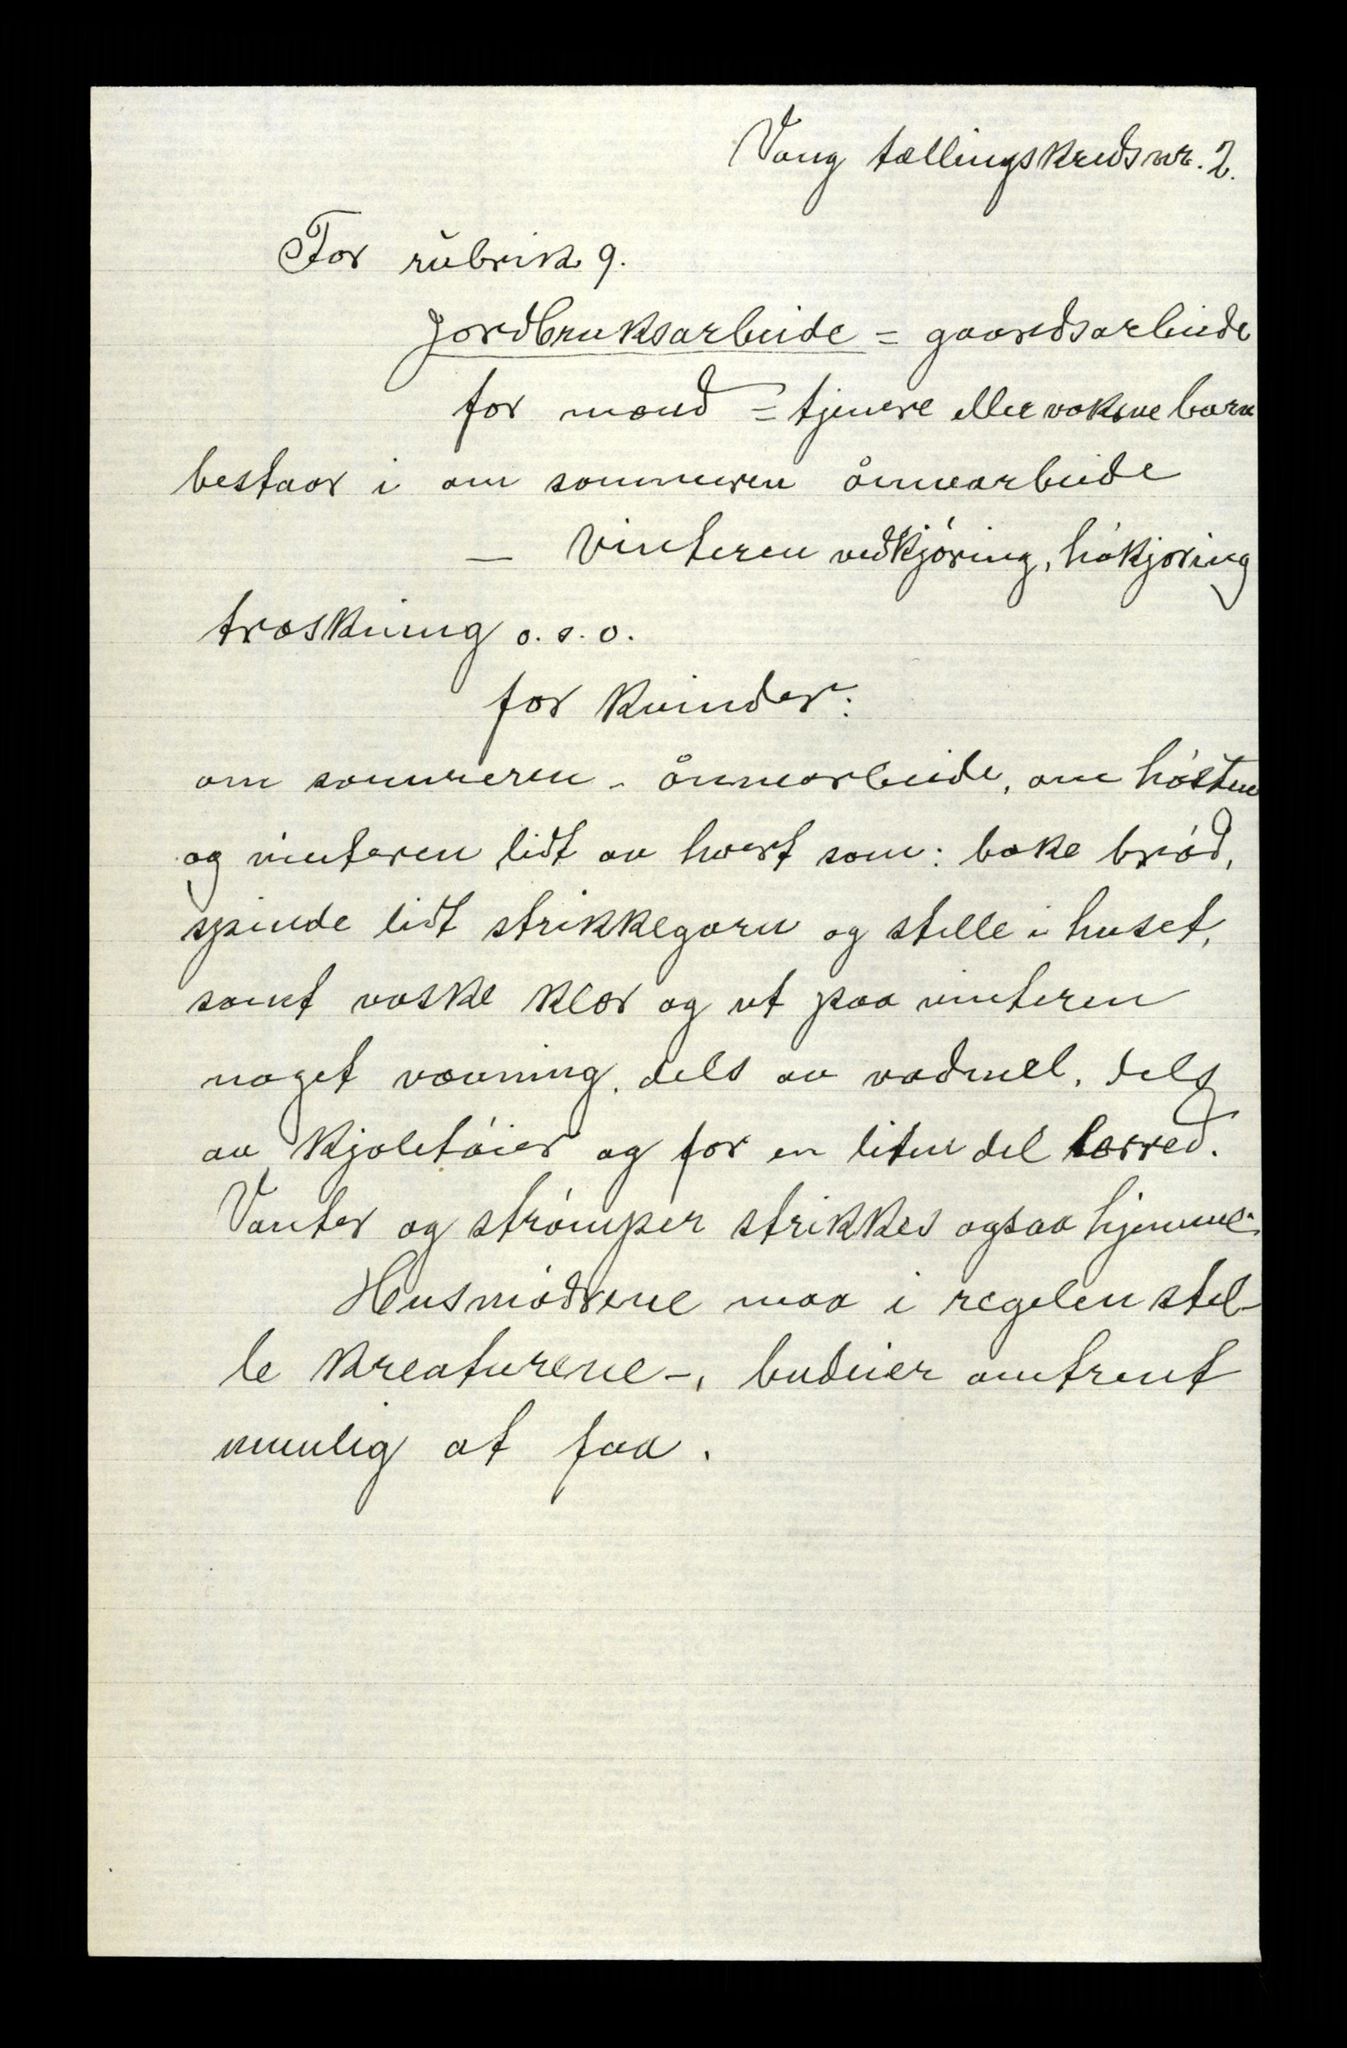 Vang tællingskreds nr. 2.
For rubrik 9.
Jordbruksarbeide = gaardsarbeide
for mænd = tjenere eller voksne barn
bestaar i om sommeren ånnearbeide
— vinteren vedkjøring, høkjøring
træskning o. s. v.
for kvinder:
om sommeren - ånnearbeide, om høsten
og vinteren lidt av hvert som: bake brød,
spinde lidt strikkegarn og stelle i huset,
samt vaske klær og ut paa vinteren
noget vævning, dels av vadmel, dels
av kjoletøier og for en liten del lærred.
Vanter og strømper strikkes ogsaa hjemme.
Husmødrene maa i regelen stel-
le kreaturene -, budeier omtrent
umulig at faa.